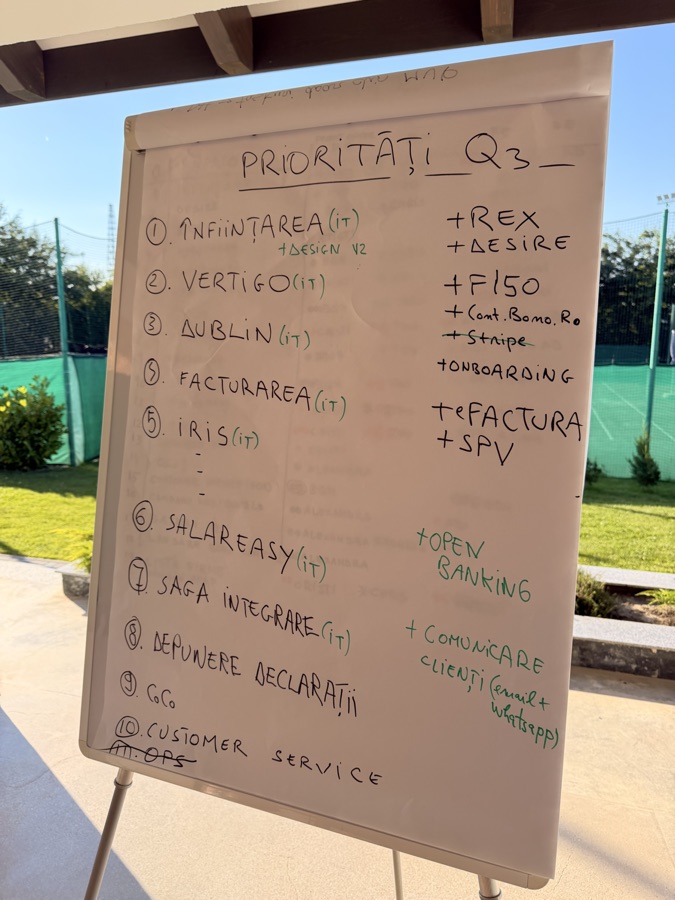 PRIORITĂȚI Q3
1. ÎNFIINȚAREA (iT)
+DESIGN V2
2. VERTIGO (iT)
3. DUBLIN (iT)
5. FACTURAREA (iT)
5. IRIS (iT)
-
-
-
6. SALAREASY (iT)
7. SAGA INTEGRARE (iT)
8. DEPUNERE DECLARAȚII
9. CoCo
10. CUSTOMER SERVICE
11. OPS
+REX
+DESIRE
+F150
+Stripe
+ONBOARDING
+eFACTURA
+SPV
+OPEN
BANKING
+ COMUNICARE
CLIENȚI (email +
whatsapp)